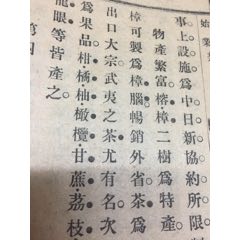 事上設施爲中日新協約所限
物產繁富。榕樟二樹爲特產。
樟可製腦。暢銷外省。茶爲
出口大宗。武夷之茶尤有名。次
爲果品。柑橘柚橄欖甘蔗荔枝
龍眼等皆產之。
第四